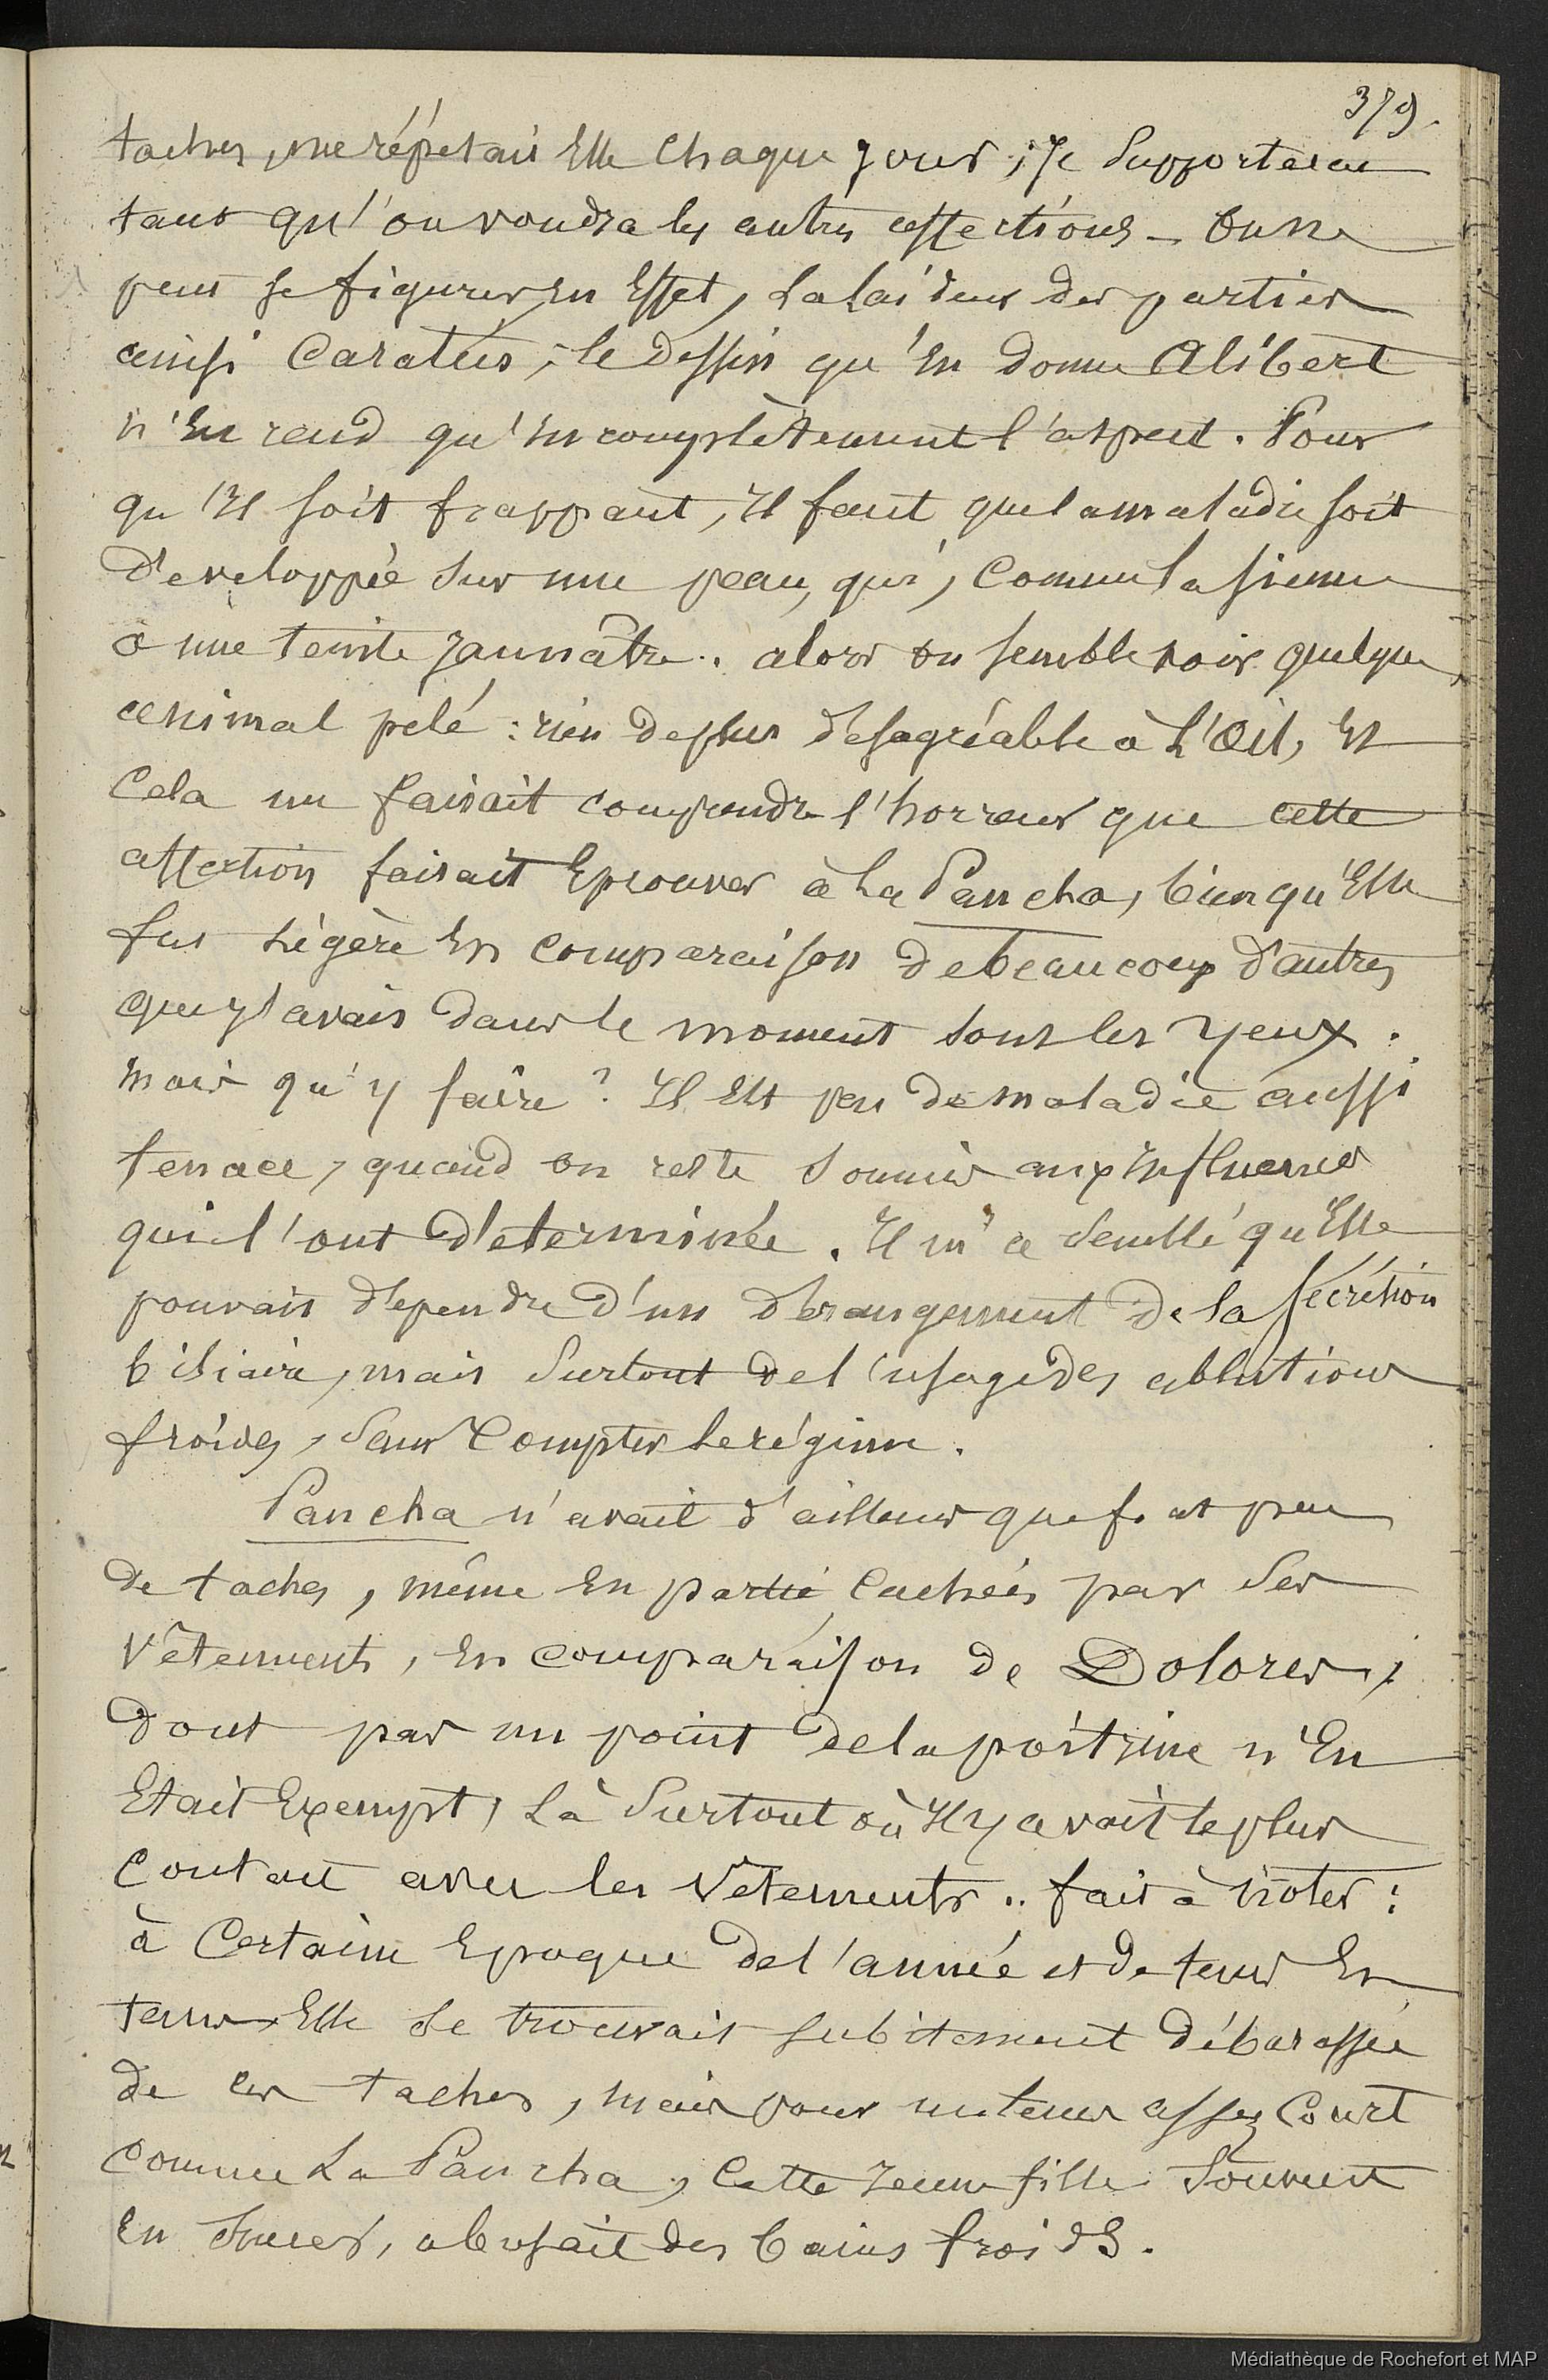 379.
taches, me répétait Elle Chaque jour ; Je Supporterai
tant qu'on voudra les autres affections – On ne
peut se figurer En Effet, La laideur des parties
ainsi Caratées, le Dessin qu'En donne Alibert
n'En rend qu'Incomplètement l'aspect. Pour
qu'Il soit frappant, Il faut que la maladie soit
Développée sur une peau, qui, Comme la sienne
a une teinte Jaunâtre. alors on semble voir quelque
animal pelé : rien de plus désagréable à L'Œil, Et
Cela me faisait comprendre l'horreur que cette
affection faisait Eprouver à La Pancha, bien qu'Elle
fut Légère En Comparaison de beaucoup d'autres
que J'avais dans le moment sous les yeux.
mais qu'y faire ? Il Est peu de maladie aussi
tenace, quand on reste Soumis aux Influences
qui l'ont Déterminée. Il m'a semblé qu'Elle
pouvait dépendre d'un dérangement de la sécrétion
biliaire, mais Surtout de l'usage des ablutions
froides, Sans Compter Le régime.
Pancha n'avait d'ailleurs que fort peu
de taches, même En partie Cachées par Ses
vêtements, En comparaison de Dolores ;
dont pas un point de la poitrine n'En
Etait Exempt, Là Surtout où Il y avait le plus
Contact avec les Vêtements.. fait à noter :
à Certaine Epoque de l'année et de tems En
tems Elle se trouvait subitement débarassée
de ces taches, mais pour un tems assez Court
Comme La Pancha, Cette Jeune fille Souvent
En Sueur, abusait des bains froids.
Médiathèque de Rochefort et MAP